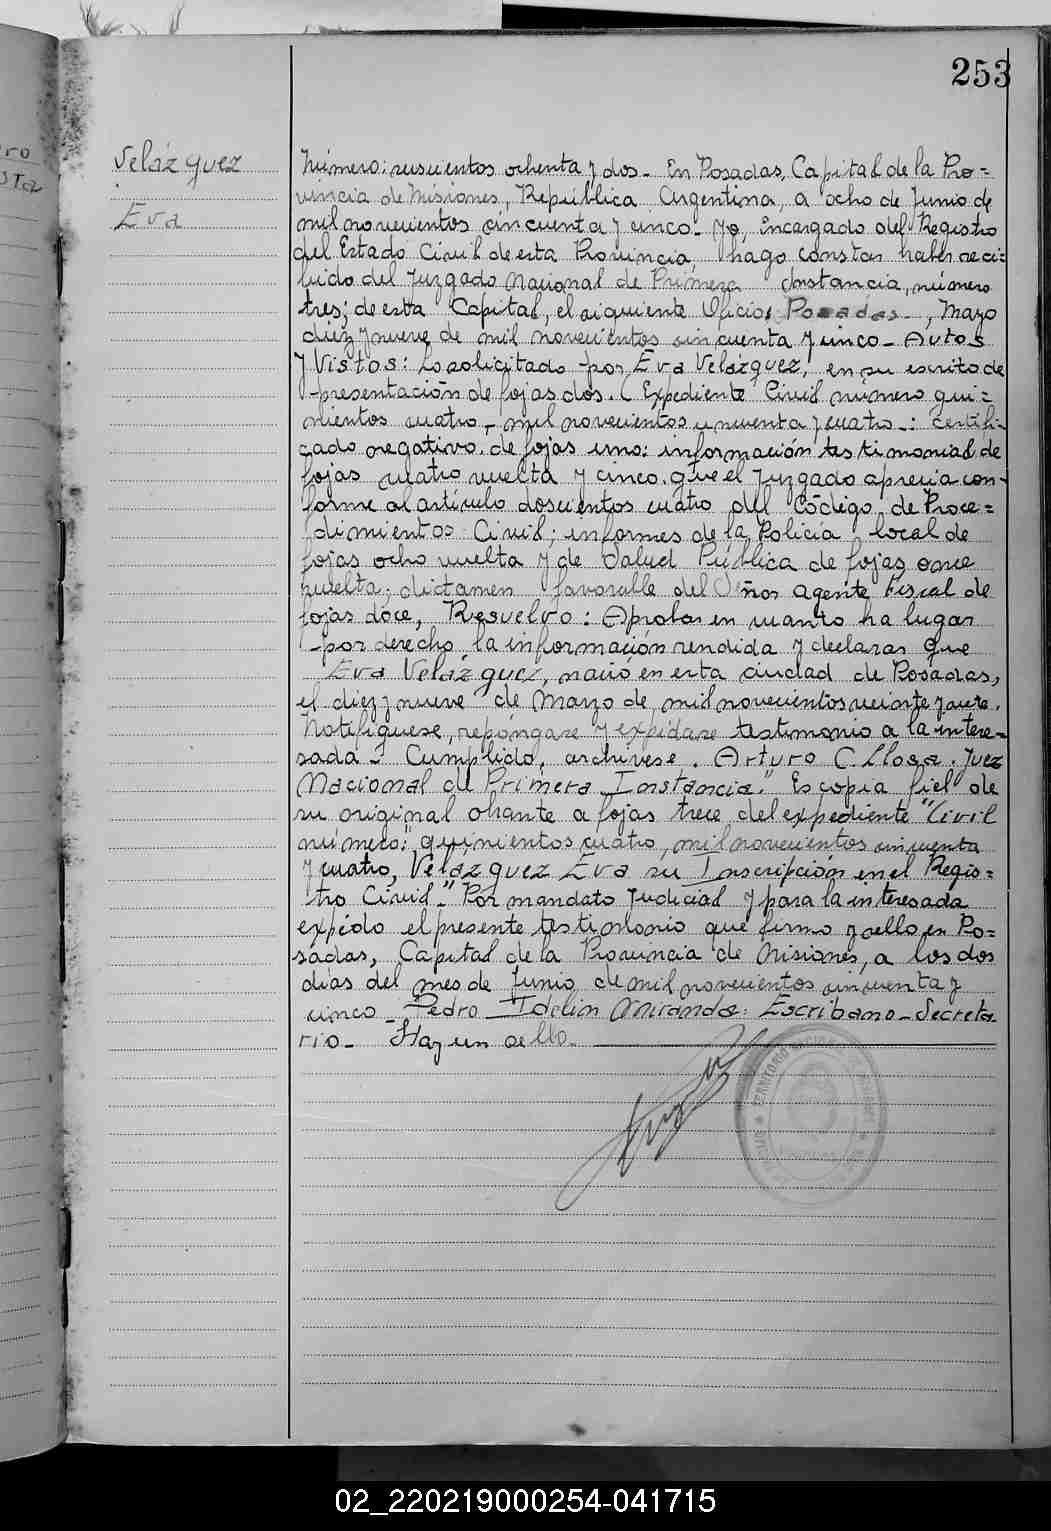 253
Velázquez
Eva
Número: doscientos ochenta y dos.- En Posadas, Capital de la Pro=
vincia de Misiones, República Argentina, a ocho de Junio de
mil novecientos cincuenta y cinco.- Yo, Encargado del Registro
del Estado Civil de esta Provincia, hago constar haber reci-
bido del Juzgado Nacional de Primera Instancia, número
tres; de esta Capital, el siguiente Oficio: Posadas.-, Mayo
diez y nueve de mil novecientos cincuenta y cinco.- Autos
y Vistos: Lo solicitado por Eva Velázquez, en su escrito de
presentación de fojas dos. (Expediente Civil número qui=
nientos cuatro, mil novecientos cincuenta y cuatro.: certifi-
cado negativo de fojas uno: información testimonial de
fojas cuatro vuelta y cinco, que el Juzgado aprecia con-
forme al artículo doscientos cuatro del Código de Proce=
dimientos Civil; informes de la Policía local de
fojas ocho vuelta y de Salud Pública de fojas once
vuelta; dictamen favorable del Señor Agente Fiscal de
fojas doce, Resuelvo: Aprobar en cuanto ha lugar
por derecho la información rendida y declarar que
Eva Velázquez, nació en esta ciudad de Posadas,
el diez y nueve de Marzo de mil novecientos veinte y
Notifíquese, repóngase y expídase testimonio a la intere-
sada.- Cumplido, archívese. Arturo C. Llosa. Juez
Nacional de Primera Instancia." Es copia fiel de
su original obrante a fojas trece del expediente "Civil
número: quinientos cuatro, mil novecientos cincuenta
y cuatro, Velázquez Eva su Inscripción en el Regis=
tro Civil".- Por mandato Judicial y para la interesada
expido el presente testimonio que firmo y sello en Po=
sadas, Capital de la Provincia de Misiones, a los dos
días del mes de Junio de mil novecientos cincuenta y
cinco.- Pedro Idelin Miranda: Escribano.- Secreta-
rio.- Hay un sello.-
TERRITORIO NACIONAL
02_220219000254-041715